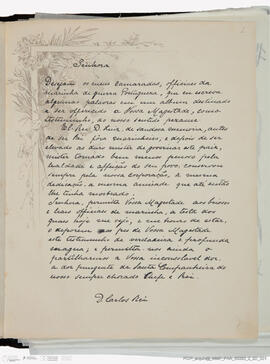 Senhora
Desejão os meus camaradas, officiaes da
marinha de guerra Portugueza, que eu escreva
algumas palavras em um album destinado
a ser offerecido a Vossa Magestade, como
testemunho, do nosso sentido pezame.
El-Rei D. Luiz, de saudosa memoria, antes
de ser Rei fôra marinheiro, e depois de ser
elevado ao arduo mister de governar este paiz,
mister tornado bem menos penoso pela
lealdade e affeição do seu povo, conservou
sempre pela nossa corporação, a mesma
dedicação, a mesma amizade que até então
lhe tinha mostrado.
Senhora, permitta Vossa Magestade aos bravos
e leaes officiaes da marinha, á testa dos
quaes hoje me vejo, e me honro de estar,
o deporem aos pés de Vossa Magestade
este testemunho de verdadeira e profunda
magua; e permitta nos ainda o
partilharmos a Vossa inconsolavel dor,
a dor pungente da Santa Companheira do
nosso sempre chorado Chefe e Rei.
D. Carlos Rei